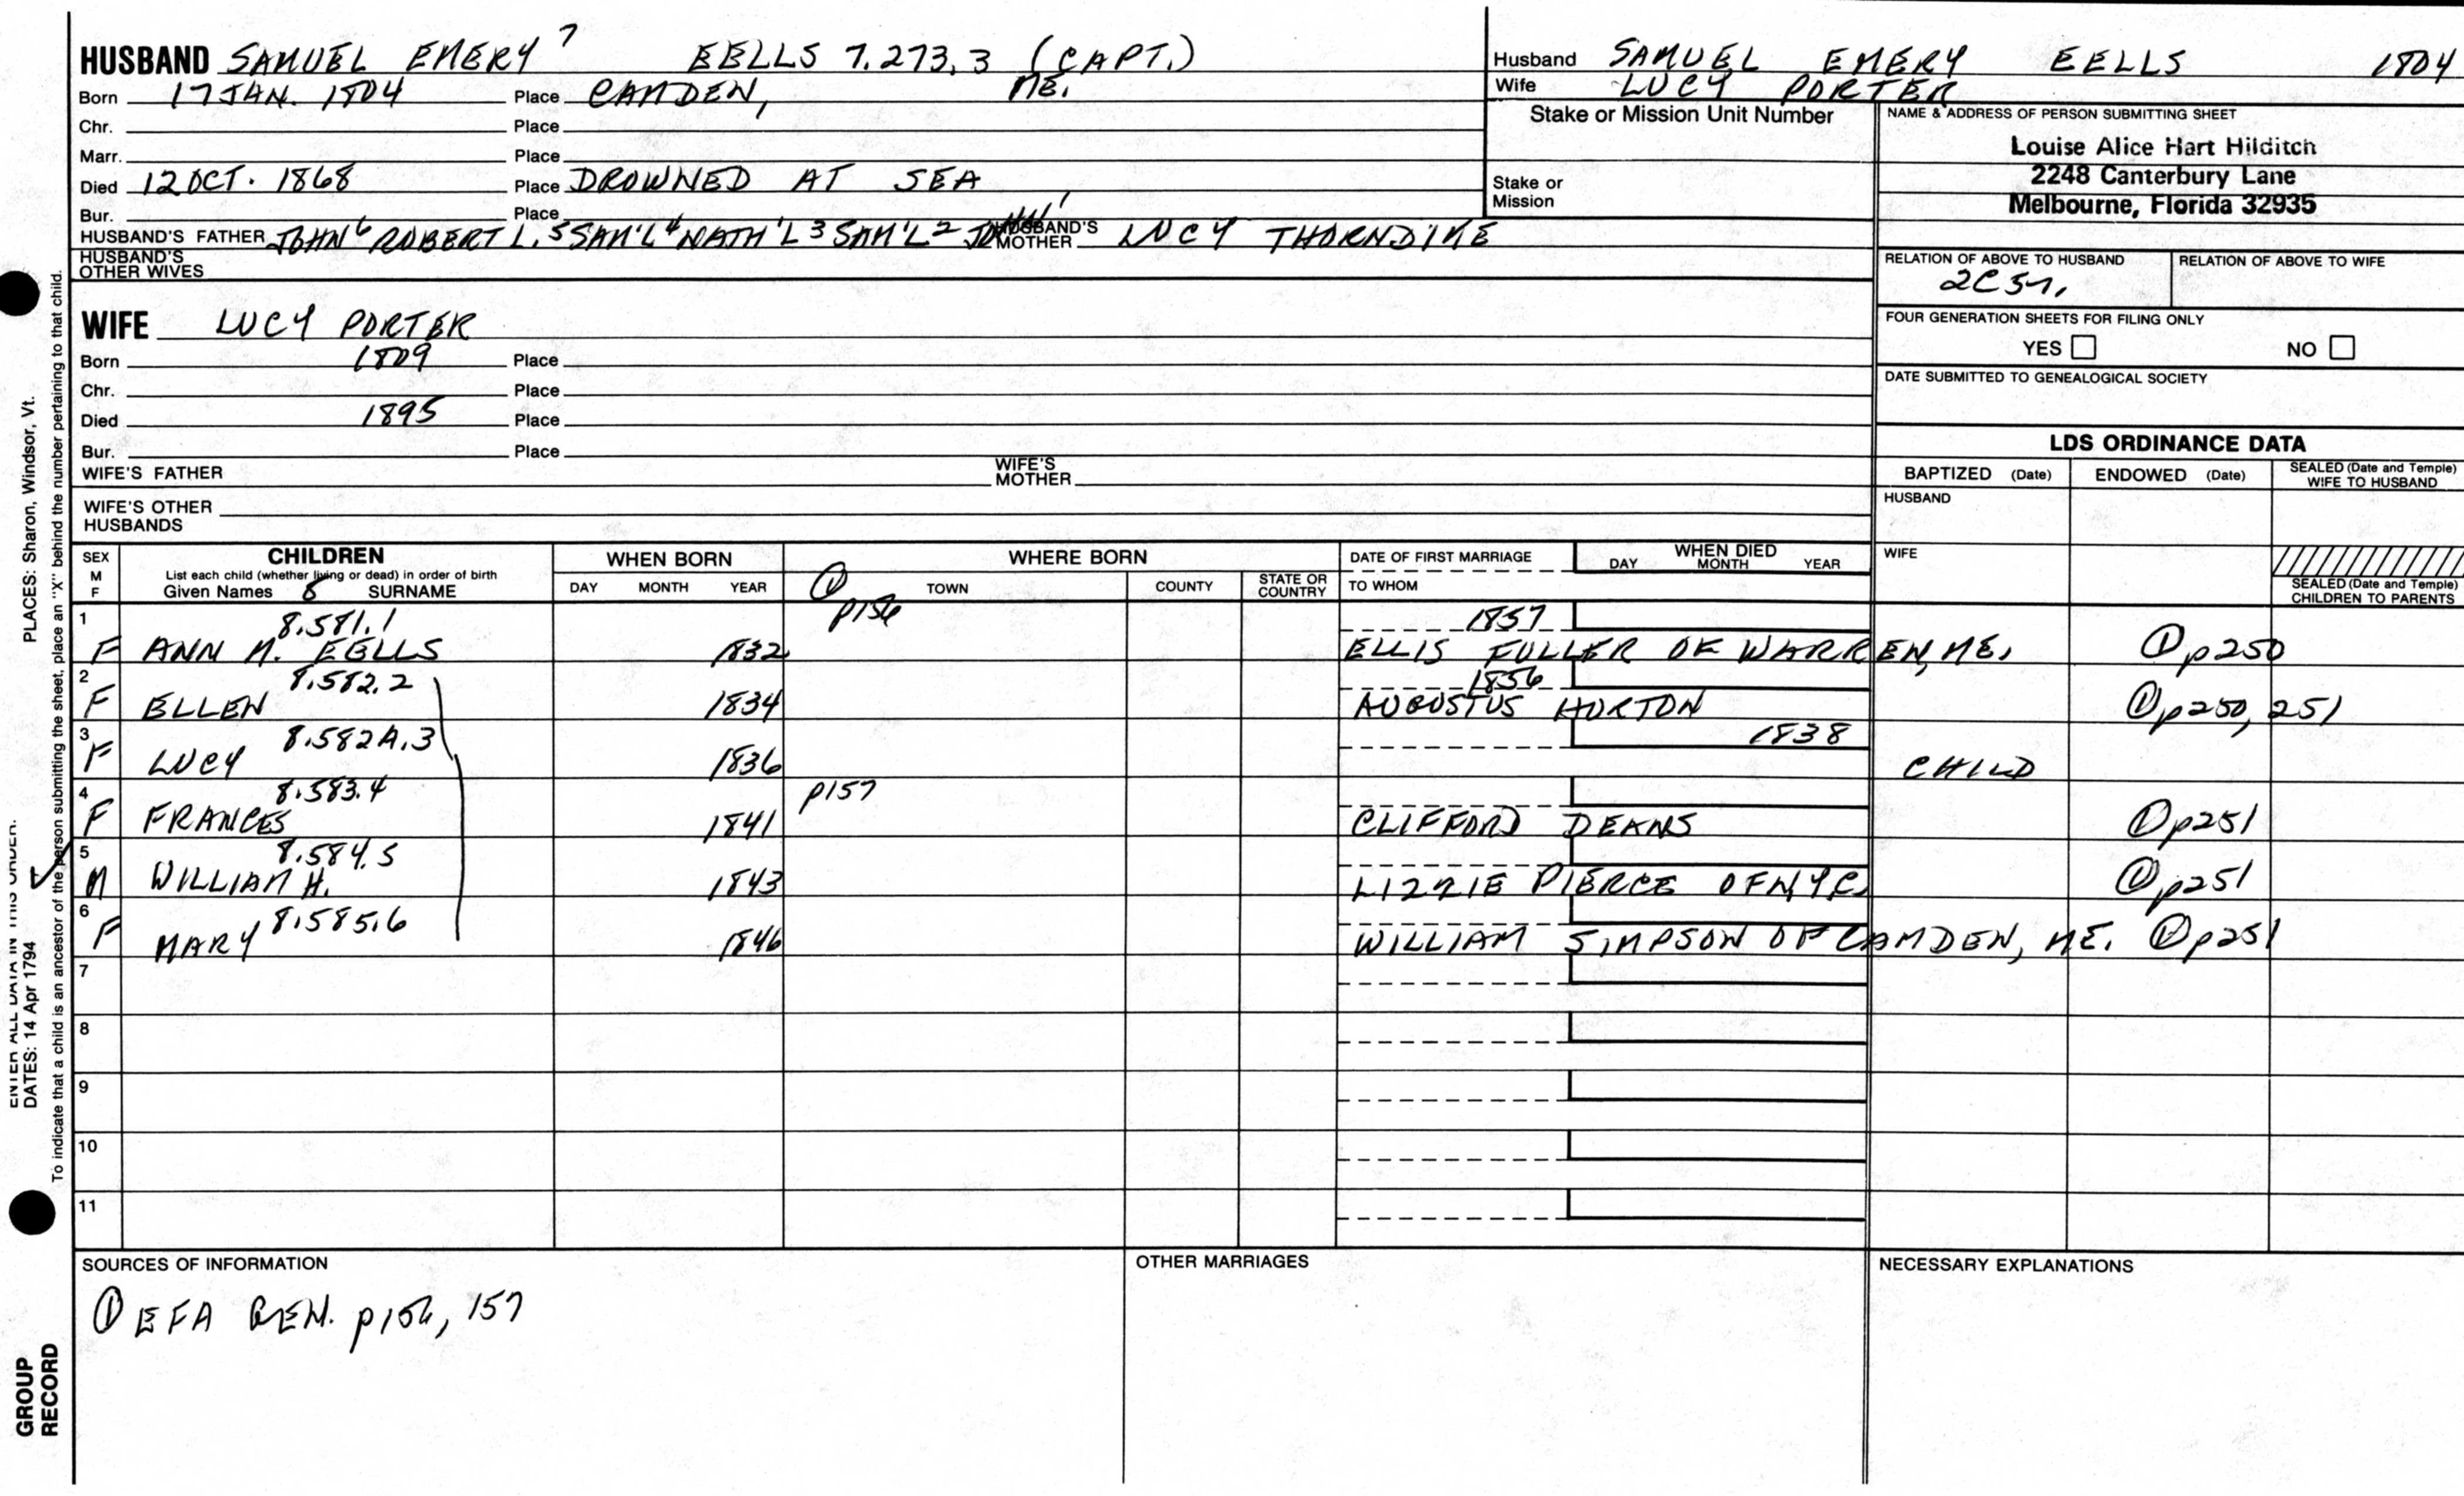 HUSBAND SAMUEL EMERY 7 EELLS 7.273.3 (CAPT.)
Born 17 JAN. 1804 Place CAMDEN, ME.
Chr. Place
Marr. Place
Died 12 OCT. 1868 Place DROWNED AT SEA
Bur. Place
HUSBAND'S FATHER JOHN 6 ROBERT L. 5 SAM'L 4 NATH'L 3 SAM'L 2 HUSBAND'S MOTHER LUCY THORNDIKE
HUSBAND'S OTHER WIVES
Husband SAMUEL EMERY EELLS 1804
Wife LUCY PORTER
Stake or Mission Unit Number
Stake or Mission
NAME & ADDRESS OF PERSON SUBMITTING SHEET
Louise Alice Hart Hilditch
2248 Canterbury Lane
Melbourne, Florida 32935
RELATION OF ABOVE TO HUSBAND RELATION OF ABOVE TO WIFE
FOUR GENERATION SHEETS FOR FILING ONLY
YES NO
DATE SUBMITTED TO GENEALOGICAL SOCIETY
WIFE LUCY PORTER
Born 1809 Place
Chr. Place
Died 1895 Place
Bur. Place
WIFE'S FATHER WIFE'S MOTHER
WIFE'S OTHER HUSBANDS
LDS ORDINANCE DATA
BAPTIZED (Date) ENDOWED (Date) SEALED (Date and Temple) WIFE TO HUSBAND
HUSBAND
WIFE
SEALED (Date and Temple) CHILDREN TO PARENTS
SEX M F
CHILDREN
List each child (whether living or dead) in order of birth
Given Names 8 SURNAME
WHEN BORN
DAY MONTH YEAR
WHERE BORN
① TOWN COUNTY STATE OR COUNTRY
DATE OF FIRST MARRIAGE
TO WHOM
WHEN DIED
DAY MONTH YEAR
1 8.581.1 p156 1857
F ANN M. EELLS 1832 ELLIS FULLER OF WARREN, ME. ① p250
2 8.582.2 1856
F ELLEN 1834 AUGUSTUS HORTON ① p250, 251
3 8.582A.3 1838
F LUCY 1836 CHILD
4 8.583.4 p157
F FRANCES 1841 CLIFFORD DEANS ① p251
5 8.584.5
M WILLIAM H. 1843 LIZZIE PIERCE OF N.Y.C. ① p251
6 8.585.6
F MARY 1846 WILLIAM SIMPSON OF CAMDEN, ME. ① p251
7
8
9
10
11
SOURCES OF INFORMATION
① EFA GEN. p156, 157
OTHER MARRIAGES
NECESSARY EXPLANATIONS
PLACES: Sharon, Windsor, Vt.
DATES: 14 Apr 1794
To indicate that a child is an ancestor of the person submitting the sheet, place an "X" behind the number pertaining to that child.
GROUP
RECORD